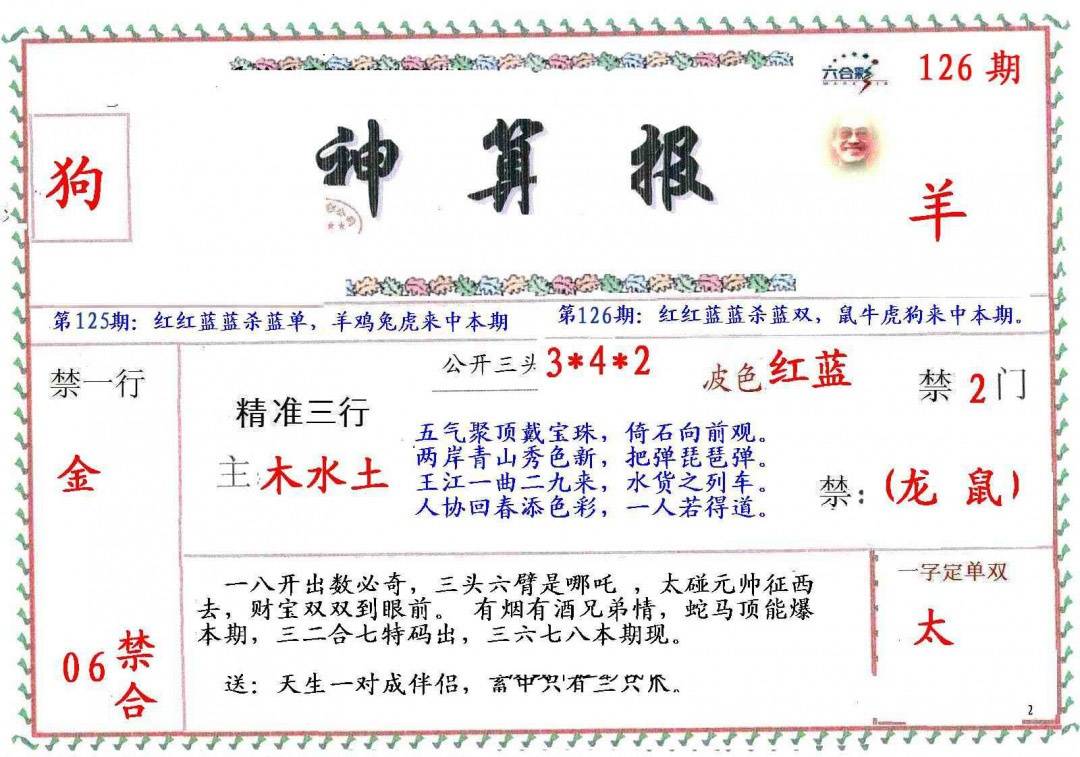 六合彩
126 期
狗
神 算 报
羊
第125期：红红蓝蓝杀蓝单，羊鸡兔虎来中本期
第126期：红红蓝蓝杀蓝双，鼠牛虎狗来中本期。
禁一行
金
06 禁合
公开三头 3*4*2
波色 红蓝
精准三行
主 木水土
五气聚顶戴宝珠，倚石向前观。
两岸青山秀色新，把弹琵琶弹。
王江一曲二九来，水货之列车。
人协回春添色彩，一人若得道。
禁 2 门
禁：(龙 鼠)
一八开出数必奇，三头六臂是哪吒 ，太碰元帅征西
去，财宝双双到眼前。 有烟有酒兄弟情，蛇马顶能爆
本期，三二合七特码出，三六七八本期现。
送：天生一对成伴侣，
一字定单双
太
2